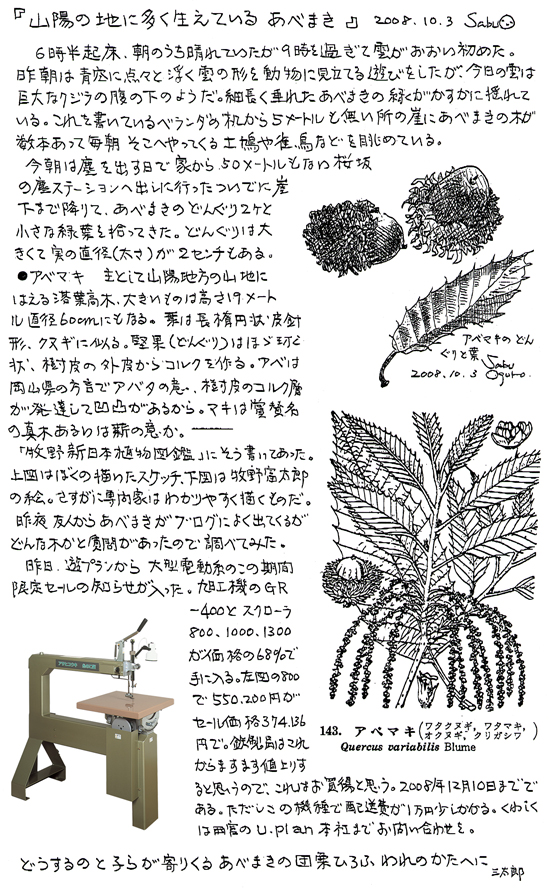 『山陽の地に多く生えている あべまき』 2008.10.3 Sabu
6時半起床、朝のうち晴れていたが9時を過ぎて雲がおおい初めた。
昨朝は青空に点々と浮く雲の形を動物に見立てる遊びをしたが、今日の雲は
巨大なクジラの腹の下のようだ。細長く垂れたあべまきの緑がかすかに揺れて
いる。これを書いているベランダの机から5メートルと無い所の崖にあべまきの木が
数本あって毎朝 そこへやってくる土鳩や雀、鳥などを眺めている。
今朝は塵を出す日で 家から、50メートルもない桜坂
の塵ステーションへ出しに行ったついでに崖
下まで降りて、あべまきのどんぐり2ケと
小さな緑葉を拾ってきた。どんぐりは大
きくて実の直径(太さ)が2センチもある。
●アベマキ 主として山陽地方の山地に
はえる落葉高木、大きいものは高さ19メート
ル直径60cmにもなる。葉は長楕円状皮針
形、クヌギに似る。堅果(どんぐり)はほゞ球
状、樹皮の外皮からコルクを作る。アベは
岡山県の方言でアバタの意、樹皮のコルク層
が発達して凹凸があるから。マキは賞賛名
の真木あるいは薪の意か。――
「牧野新日本植物図鑑」にそう書いてあった。
上図はぼくの描いたスケッチ、下図は牧野富太郎
の絵。さすがに専門家はわかりやすく描くものだ。
昨夜 友人からあべまきがブログによく出てくるが
どんな木かと質問があったので調べてみた。
昨日、遊プランから 大型電動糸のこの期間
限定セールの知らせが入った。旭工機のGR
-400とスクローラ
800、1000、1300
が価格の68%で
手に入る。左図の800
で550.200円が
セール価格374.136
円で。鉄製品はこれ
からますます値上りす
ると思うので、これはお買得と思う。2008年12月10日までで
ある。ただしこの機種で配送費が1万円少しかかる。くわしく
は西宮のU.plan本社までお問い合わせを。
どうするのと子らが寄りくる あべまきの団栗ひろふ われのかたへに
三太郎
アベマキのどん
ぐりと葉
Sabu
Oguro.
2008.10.3
143. アベマキ(ワタクヌギ, ワタマキ, オクヌギ, クリガシワ)
Quercus variabilis Blume